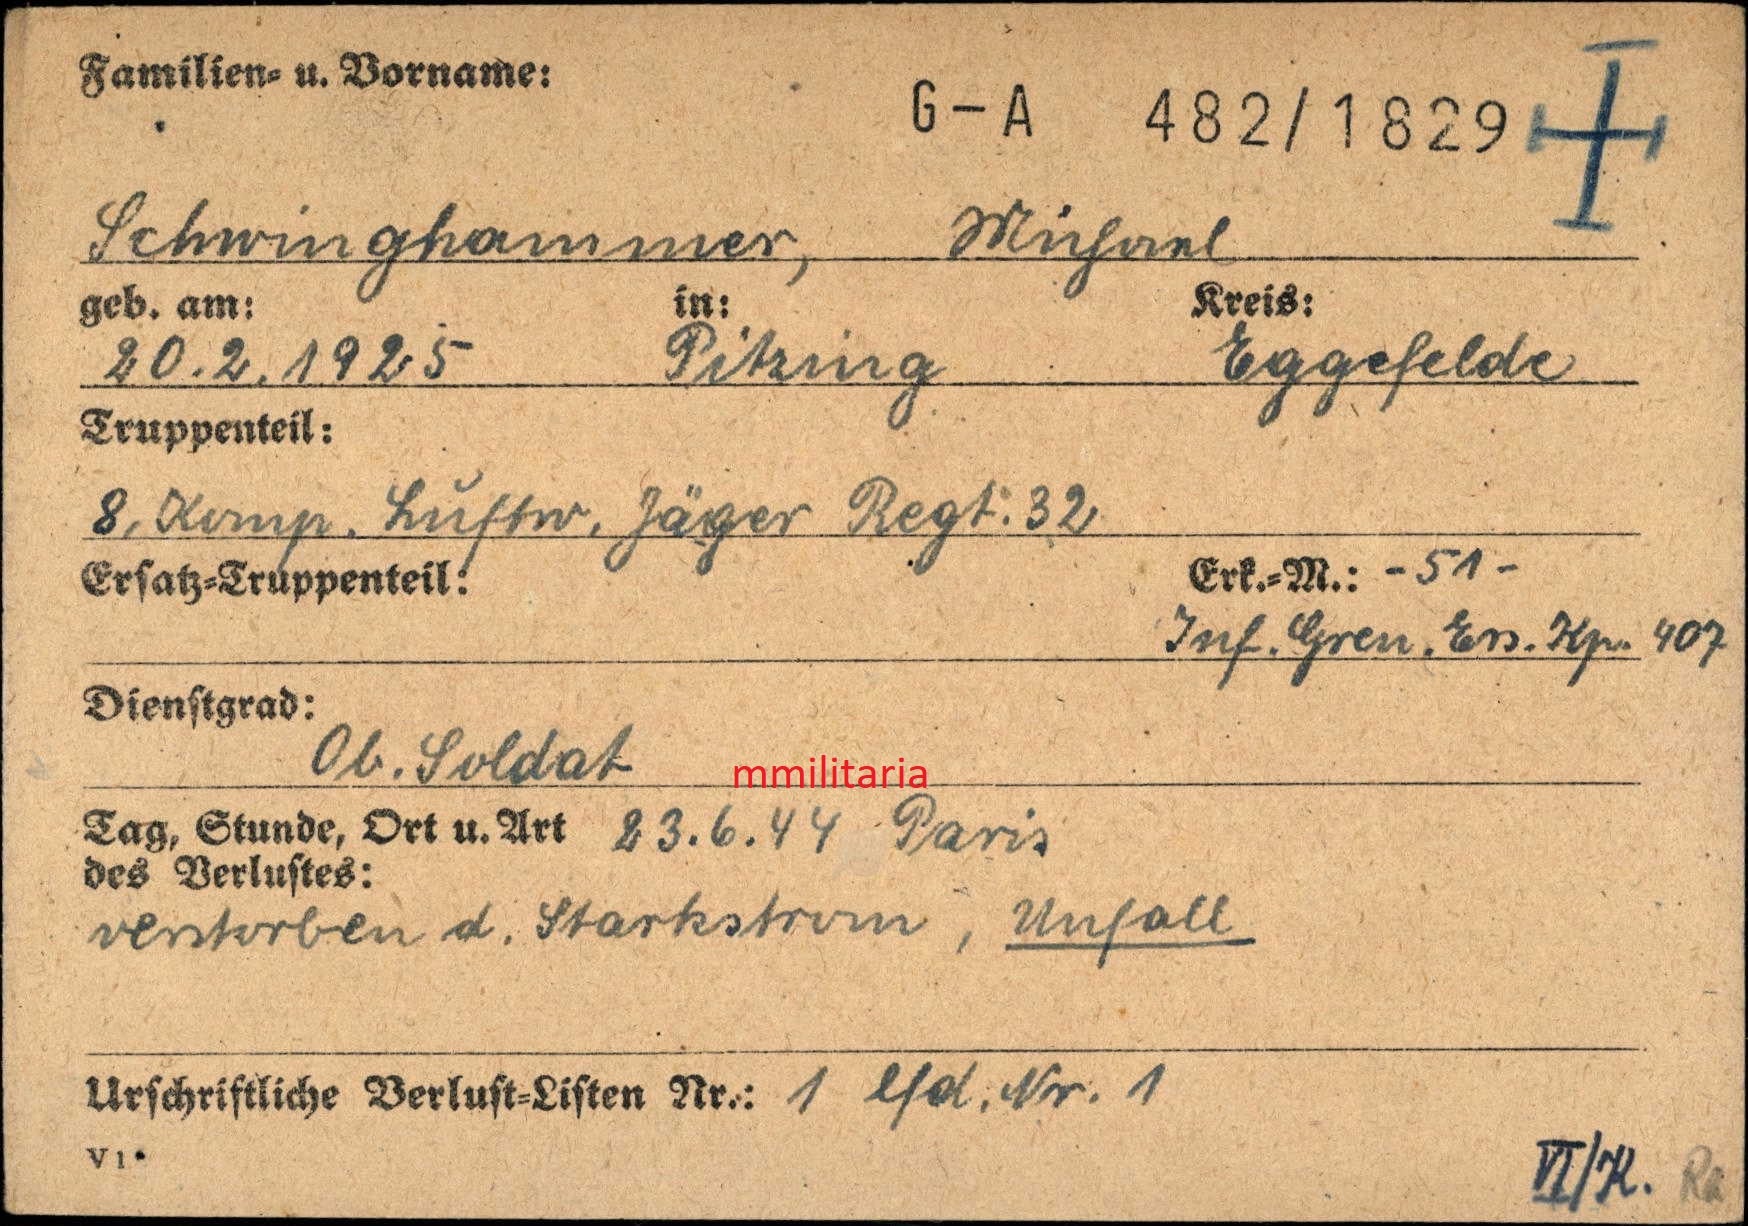 Familien- u. Vorname:
G-A 482/1829
Schwinghammer, Michael
geb. am: in: Kreis:
20.2.1925 Pitzing Eggefelde
Truppenteil:
8. Komp. Luftw. Jäger Regt. 32
Ersatz-Truppenteil: Erk.-M.: -51-
Inf. Gren. Ers. Kp. 407
Dienstgrad:
Ob. Soldat
mmilitaria
Tag, Stunde, Ort u. Art 23.6.44 Paris
des Verlustes:
verstorben d. Starkstrom, Unfall
Urschriftliche Verlust-Listen Nr.: 1 lfd. Nr. 1
V 1
VI/K. Ra